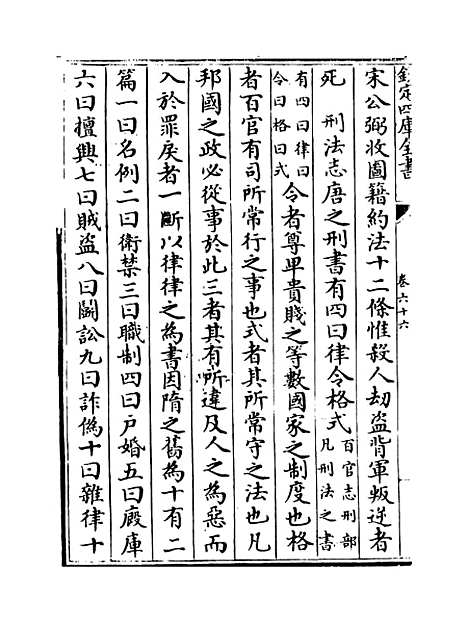 欽定四庫全書
卷六十六
宋公弼收圖籍約法十二條惟殺人劫盜背軍叛逆者
死　刑法志唐之刑書有四曰律令格式百官志刑部凡刑法之書
有四曰律曰令曰格曰式令者尊卑貴賤之等數國家之制度也格
者百官有司所常行之事也式者其所常守之法也凡
邦國之政必從事於此三者其有所違及人之為惡而
入於罪戾者一斷以律律之為書因隋之舊為十有二
篇一曰名例二曰衛禁三曰職制四曰戶婚五曰廐庫
六曰擅興七曰賊盜八曰鬭訟九曰詐偽十曰雜律十